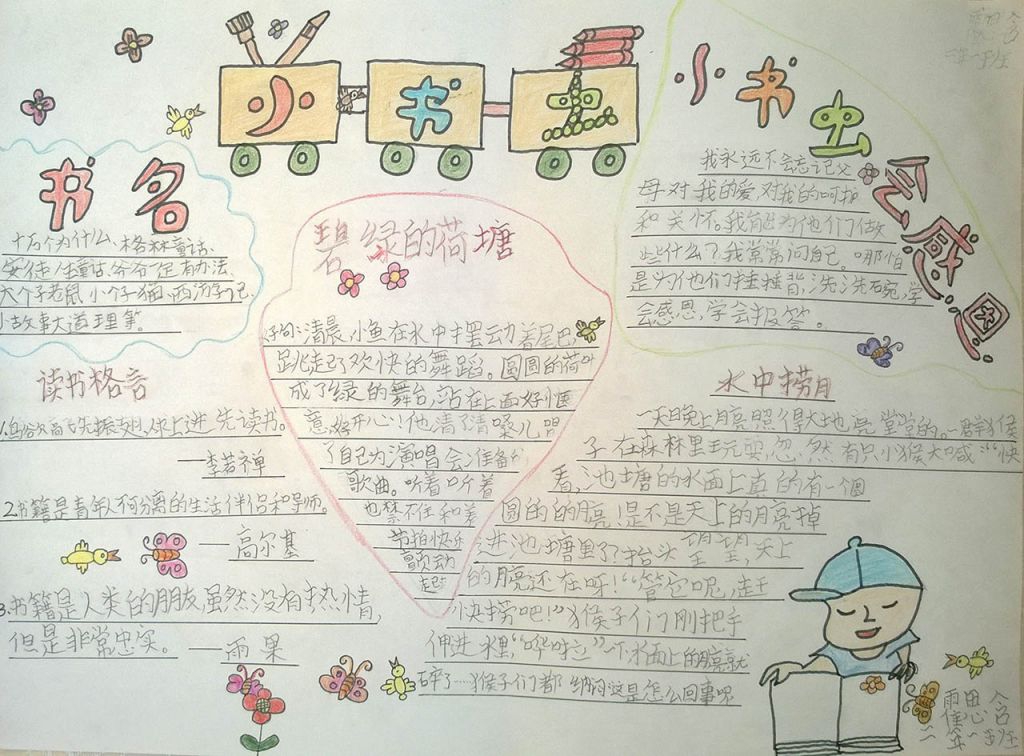 小书虫
书名
十万个为什么、格林童话、
安徒生童话、爷爷一定有办法、
大个子老鼠小个子猫、西游记、
小故事大道理等。
碧绿的荷塘
好句:清晨,小鱼在水中摆动着尾巴,
跳起了欢快的舞蹈。圆圆的荷叶
成了绿的舞台,站在上面好惬
意,好开心!他清了清嗓儿唱
了自己为演唱会准备的
歌曲。听着听着
也禁不住和着
节拍快乐
颤动
起
小书虫
会感恩
我永远不会忘记父
母对我的爱,对我的呵护
和关怀。我能为他们做
些什么?我常常问自己。哪怕
是为他们捶捶背,洗洗碗,学
会感恩,学会报答。
读书格言
1.鸟欲高飞先振翅,人求上进先读书。
——李若禅
2.书籍是青年人不可分离的生活伴侣和导师。
——高尔基
3.书籍是人类的朋友,虽然没有热情,
但是非常忠实。——雨果
水中捞月
一天晚上月亮照得大地亮堂堂的。一群猴
子在森林里玩耍,忽然有只小猴大喊:“快
看,池塘的水面上真的有一个圆
圆的的月亮!是不是天上的月亮掉
进池塘里了?抬头望望,天上
的月亮还在呀!“管它呢,赶
快捞吧!”猴子们刚把手
伸进水里,“哗啦”一下水面上的月亮就
碎了……猴子们都纳闷这是怎么回事呢